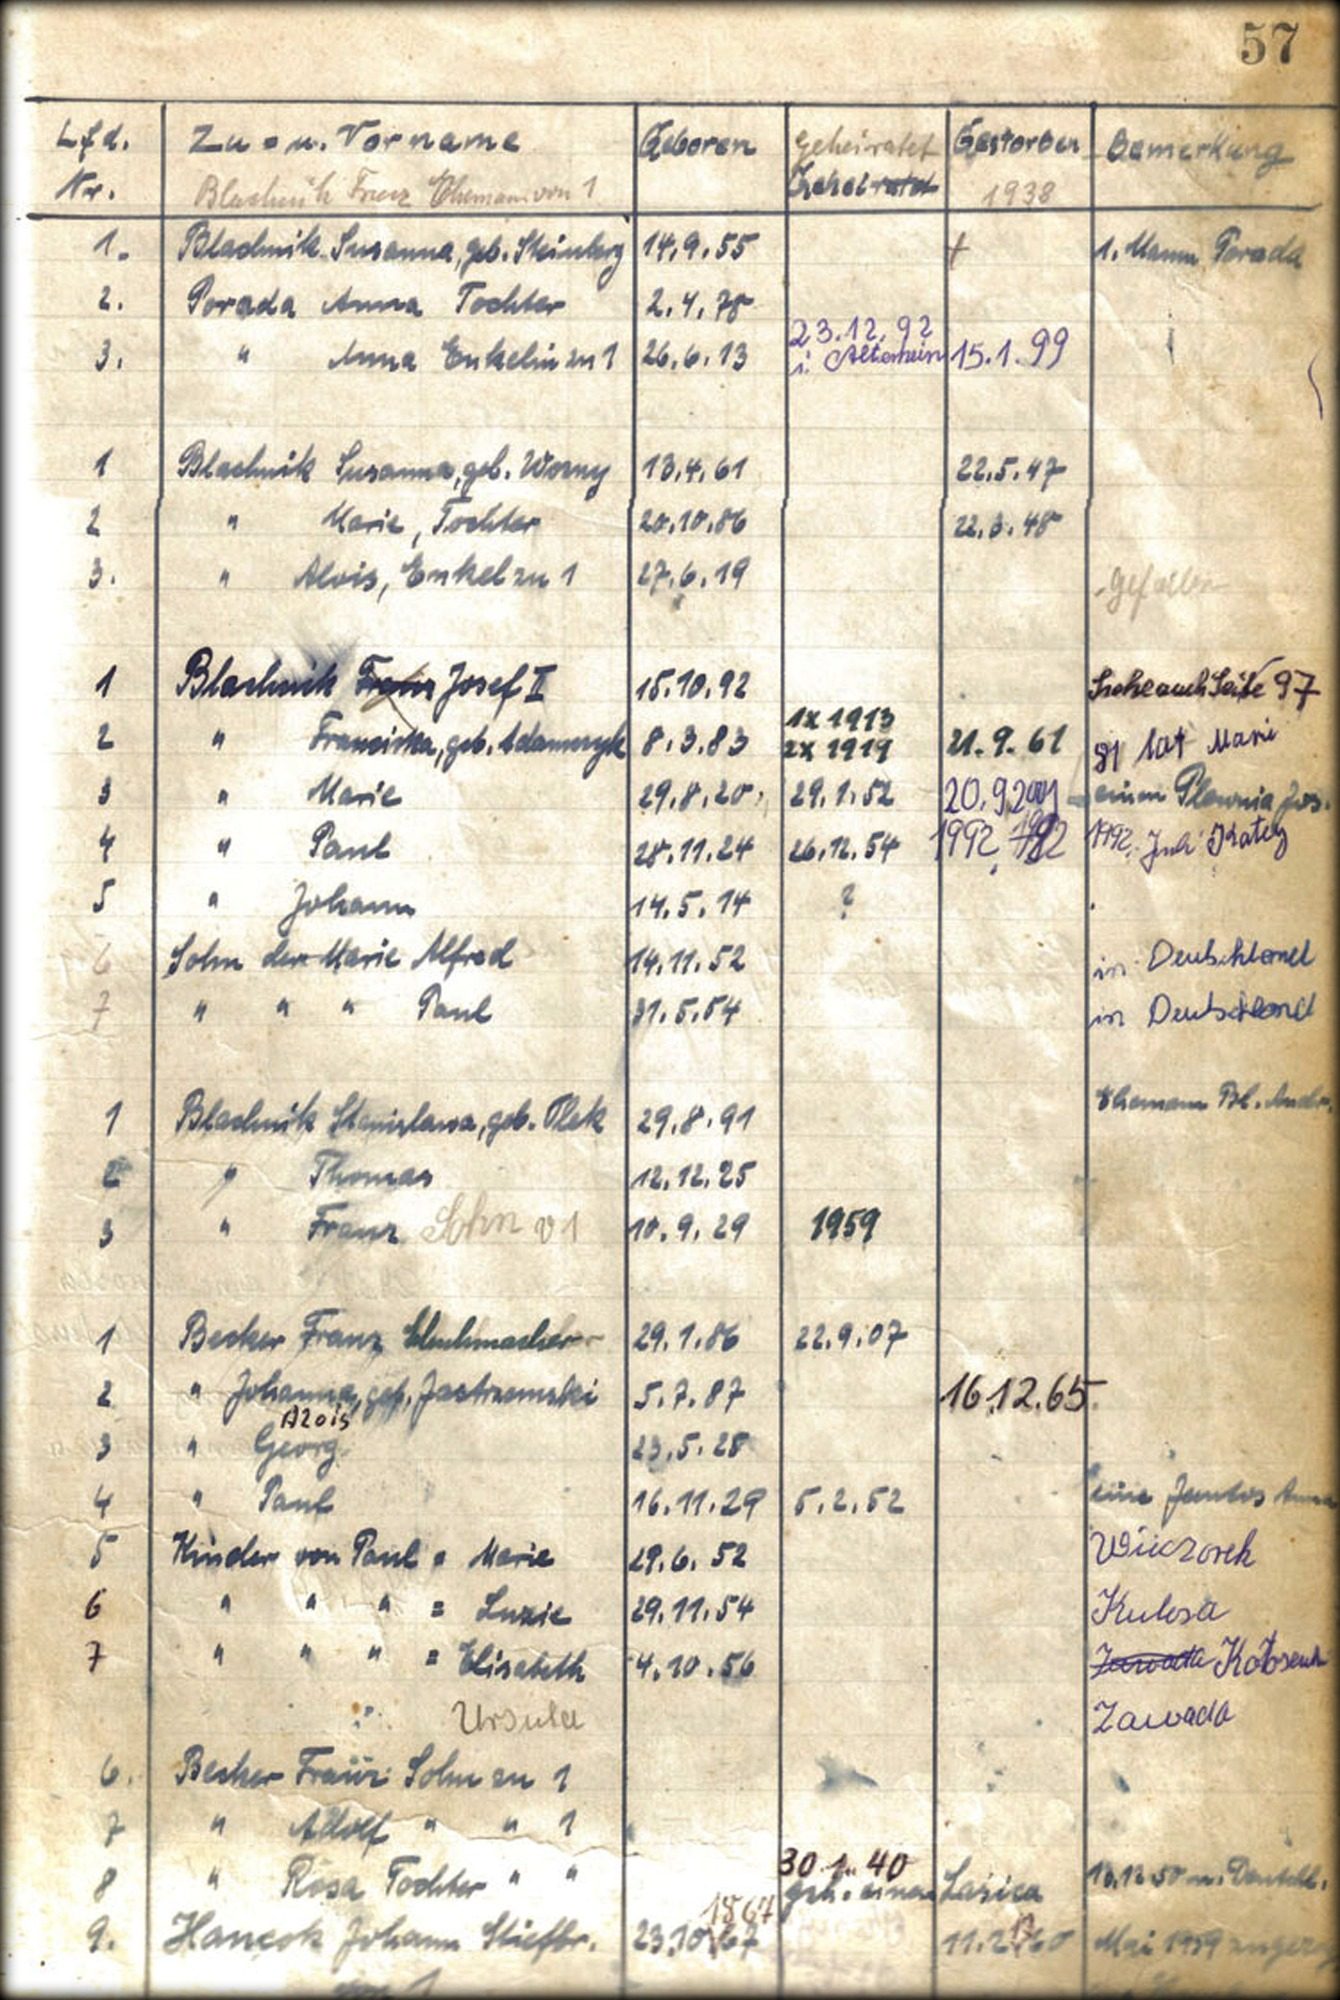 57
Lfd. Zu = u. Vorname Geboren Geheiratet Gestorben Bemerkung
Nr. Blachnik Franz Ehemann von 1 Geheiratet 1938
1. Blachnik Susanna, geb. Steinberg 14.9.55 + 1. Mann Porada
2. Porada Anna Tochter 2.4.78
3. " Anna Enkelin zu 1 26.6.13 23.12.92 i. 15.1.99
1 Blachnik Susanna, geb. Worny 13.4.61 22.5.47
2 " Marie, Tochter 20.10.86 22.3.48
3. " Alois, Enkel zu 1 27.6.19 gefallen
1 Blachnik Franz Josef II 15.10.92 Siehe auch Seite 97
2 " Franziska, geb. Adamczyk 8.3.83 1x 1913 2x 1919 21.9.61 Marie
3 " Marie 29.8.20 29.1.52 20.9.2001 einen Plewnia Jos.
4 " Paul 28.11.24 26.12.54 1992 1992
5 " Johann 14.5.14 ?
6 Sohn der Marie Alfred 14.11.52 in Deutschland
7 " " " Paul 31.5.54 in Deutschland
1 Blachnik Stanislawa, geb. Plek 29.8.91 Ehemann Bl. Andr.
2 " Thomas 12.12.25
3 " Franz Sohn v 1 10.9.29 1959
1 Becker Franz Schuhmacher 29.1.86 22.9.07
2 " Johanna, geb. Jastrzemski 5.7.87 16.12.65
Alois
3 " Georg 23.5.28
4 " Paul 16.11.29 5.2.52 eine Jantos Anna
5 Kinder von Paul = Marie 29.6.52 Wieczorek
6 " " " = Luzie 29.11.54 Kulosa
7 " " " = Elisabeth 4.10.56 Zawada
" Ursula Zawada
6. Becker Franz Sohn zu 1
7 " Adolf " " 1
8 " Rosa Tochter " " 30.1.40 geh. einen Lasica 10.12.50 n. Deutschl.
9. Hancok Johann Stiefbr. 23.10.67 1867 11.2.60 Mai 1959
von 1